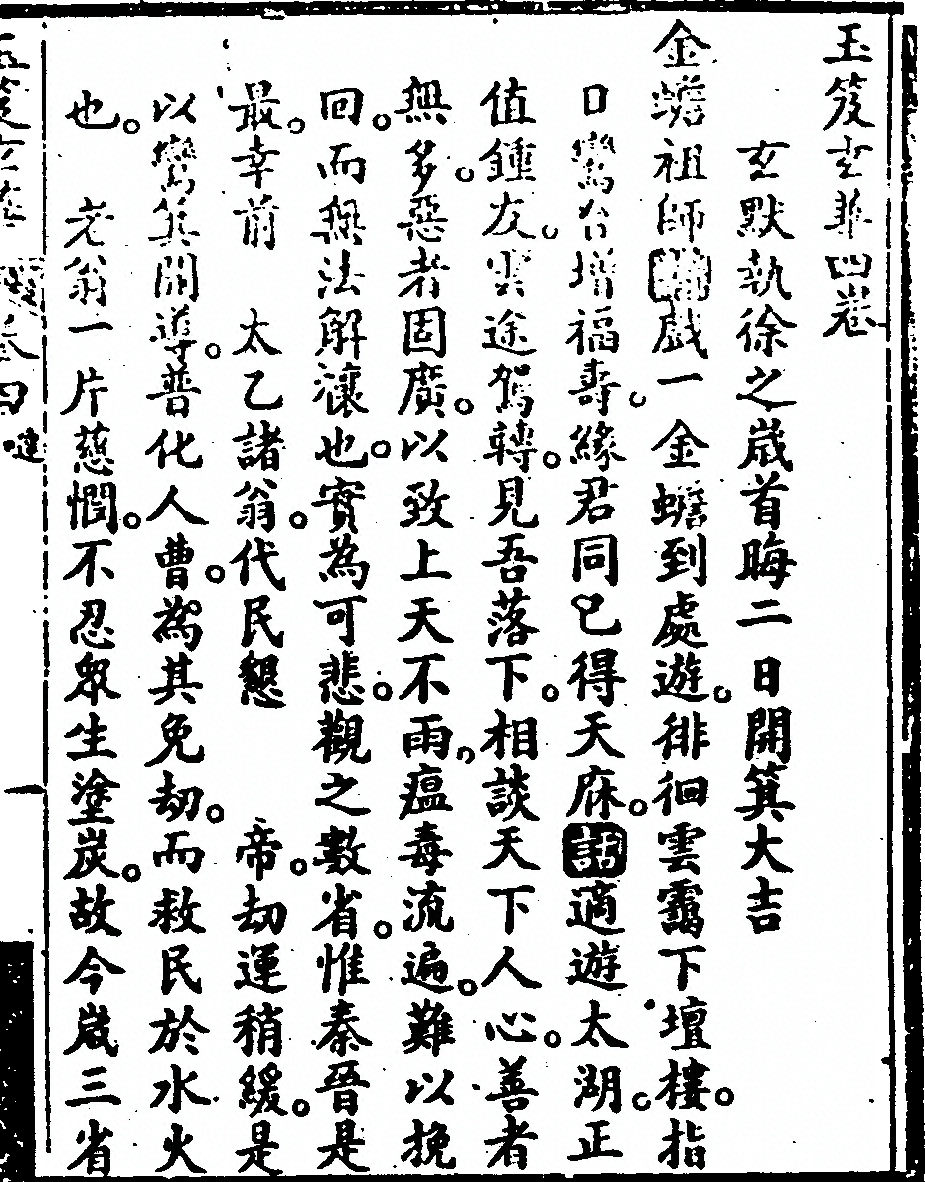 玉笈玄華四卷
玄默執徐之歲首晦二日開箕大吉
金蟾祖師戲一金蟾到處遊。徘徊雲靄下壇樓。指
口鸞台增福壽。緣君同已得天庥。話適遊太湖。正
值鍾友。雲途駕轉。見吾落下。相談天下人心。善者
無多。惡者固廣。以致上天不雨。瘟毒流遍。難以挽
回。而無法解禳也。實為可悲。觀之數省。惟秦晉是
最。幸前 太乙諸翁。代民懇 帝。劫運稍緩。是
以鸞箕開導。普化人曹。為其免劫。而救民於水火
也。 老翁一片慈憫。不忍眾生塗炭。故今歲三省